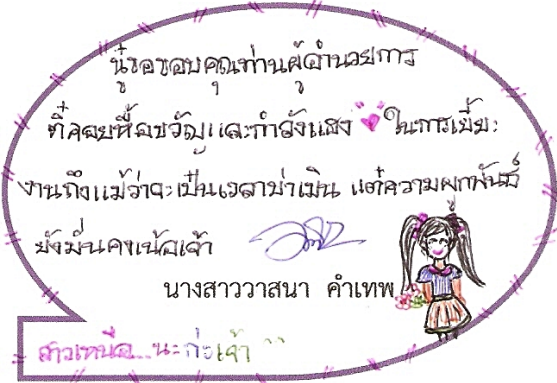 นู๋ขอขอบคุณท่านผู้อำนวยการ
ตี้คอยหื้อขวัญและกำลังแฮง ในการเยี๊ยะ
งานถึงแม้ว่าจะเป็นเวลาบ่าเมิน แต่ความผูกพันธ์
ยังมั่นคงเน้อเจ้า
นางสาววาสนา คำเทพ
สาวเหนือ...นะก่ะเจ้า ^^